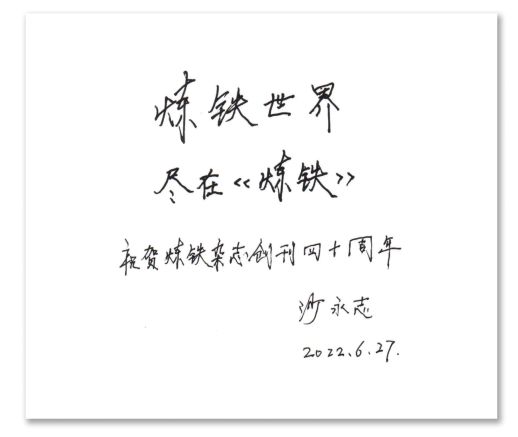 炼铁世界
尽在《炼铁》
祝贺炼铁杂志创刊四十周年
沙永志
2022.6.27.